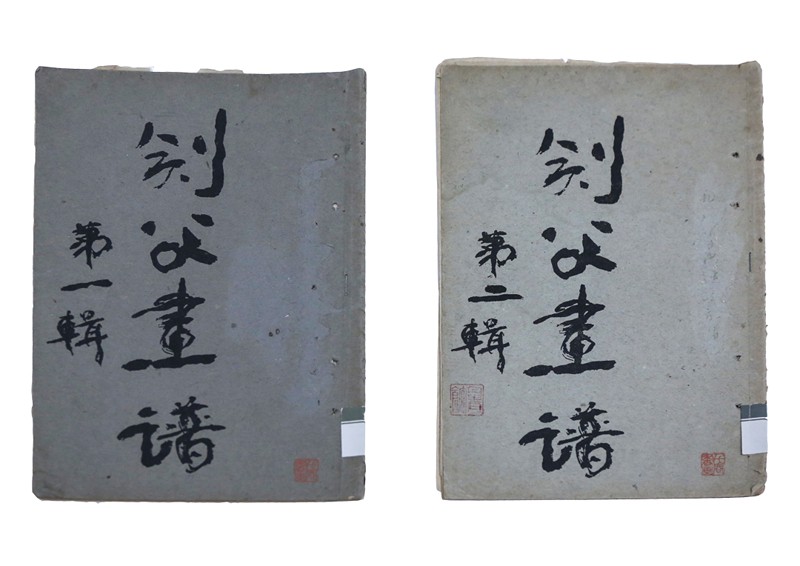 剑父畫譜
第一輯
剑父畫譜
第二輯